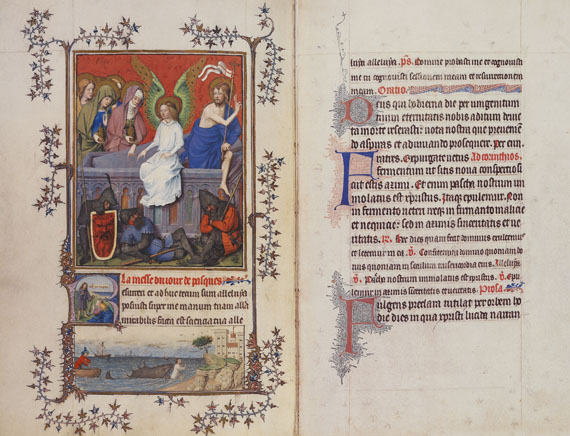 La messe du iour de pasques
esurrexi et adhuc tecum sum alleluya
posuisti super me manum tuam alla
mirabilis facta est sciencia alle
luya alleluya. ps. Domine probasti me et cognouisti
me tu cognouisti sessionem meam et resurrectionem
meam. Oratio.
Deus qui hodierna die per unigenitum
tuum eternitatis nobis aditum deuic
ta morte reserasti: uota nostra que preueni en
do aspiras et adiuuando prosequere. Per eun
Fratres. Expurgate uetus Ad corinthios.
fermentum ut sitis noua conspersio
sicut estis azimi. Et enim pascha nostrum im
molatus est xpistus. Itaqz epulemur. Non
in fermento ueteri neqz in fermento malicie
et nequicie: sed in azimis sinceritatis et ue
ritatis. Hec dies quam fecit dominus exultemus
et letemur in ea. Confitemini domino quoniam bo
nus quoniam in seculum misericordia eius. Alleluya.
Pascha nostrum immolatus est xpistus. epu
lemur in azimis sinceritatis et ueritatis. Prosa.
Fulgens preclara rutilat per orbem ho
die dies in qua xpisti lucida narran